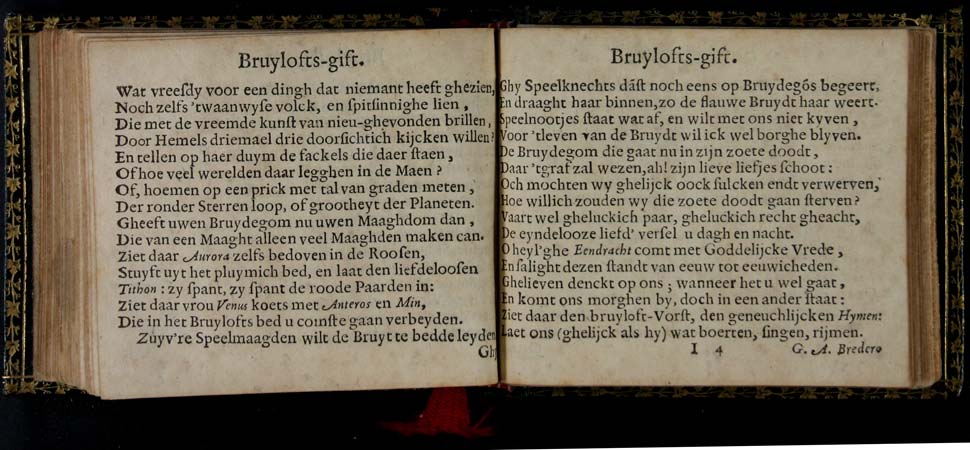 Bruylofts-gift.
Wat vreesdy voor een dingh dat niemant heeft ghezien,
Noch zelfs 'twaanwyse volck, en spitsinnighe lien,
Die met de vreemde kunst van nieu-ghevonden brillen,
Door Hemels driemael drie doorsichtich kijcken willen?
En tellen op haer duym de fackels die daer staen,
Of hoe veel werelden daar legghen in de Maen?
Of, hoemen op een prick met tal van graden meten,
Der ronder Sterren loop, of grootheyt der Planeten.
Gheeft uwen Bruydegom nu uwen Maaghdom dan,
Die van een Maaght alleen veel Maaghden maken can.
Ziet daar Aurora zelfs bedoven in de Roosen,
Stuyft uyt het pluymich bed, en laat den liefdeloosen
Tithon: zy spant, zy spant de roode Paarden in:
Ziet daar vrou Venus koets met Anteros en Min,
Die in het Bruylofts bed u comste gaan verbeyden.
Zuyv're Speelmaagden wilt de Bruyt te bedde leyden
Ghy
Bruylofts-gift.
Ghy Speelknechts dāst noch eens op Bruydegōs begeert,
En draaght haar binnen, zo de flauwe Bruydt haar weert.
Speelnootjes staat wat af, en wilt met ons niet kyven,
Voor 'tleven van de Bruydt wil ick wel borghe blyven.
De Bruydegom die gaat nu in zijn zoete doodt,
Daar 'tgraf zal wezen, ah! zijn lieve liefjes schoot:
Och mochten wy ghelijck oock sulcken endt verwerven,
Hoe willich zouden wy die zoete doodt gaan sterven?
Vaart wel gheluckich paar, gheluckich recht gheacht,
De eyndelooze liefd' versel u dagh en nacht.
O heyl'ghe Eendracht comt met Goddelijcke Vrede,
En salight dezen standt van eeuw tot eeuwicheden.
Ghelieven denckt op ons; wanneer het u wel gaat,
En komt ons morghen by, doch in een ander staat:
Ziet daar den bruyloft-Vorst, den geneuchlijcken Hymen:
Laet ons (ghelijck als hy) wat boerten, singen, rijmen.
I 4 G. A. Bredero